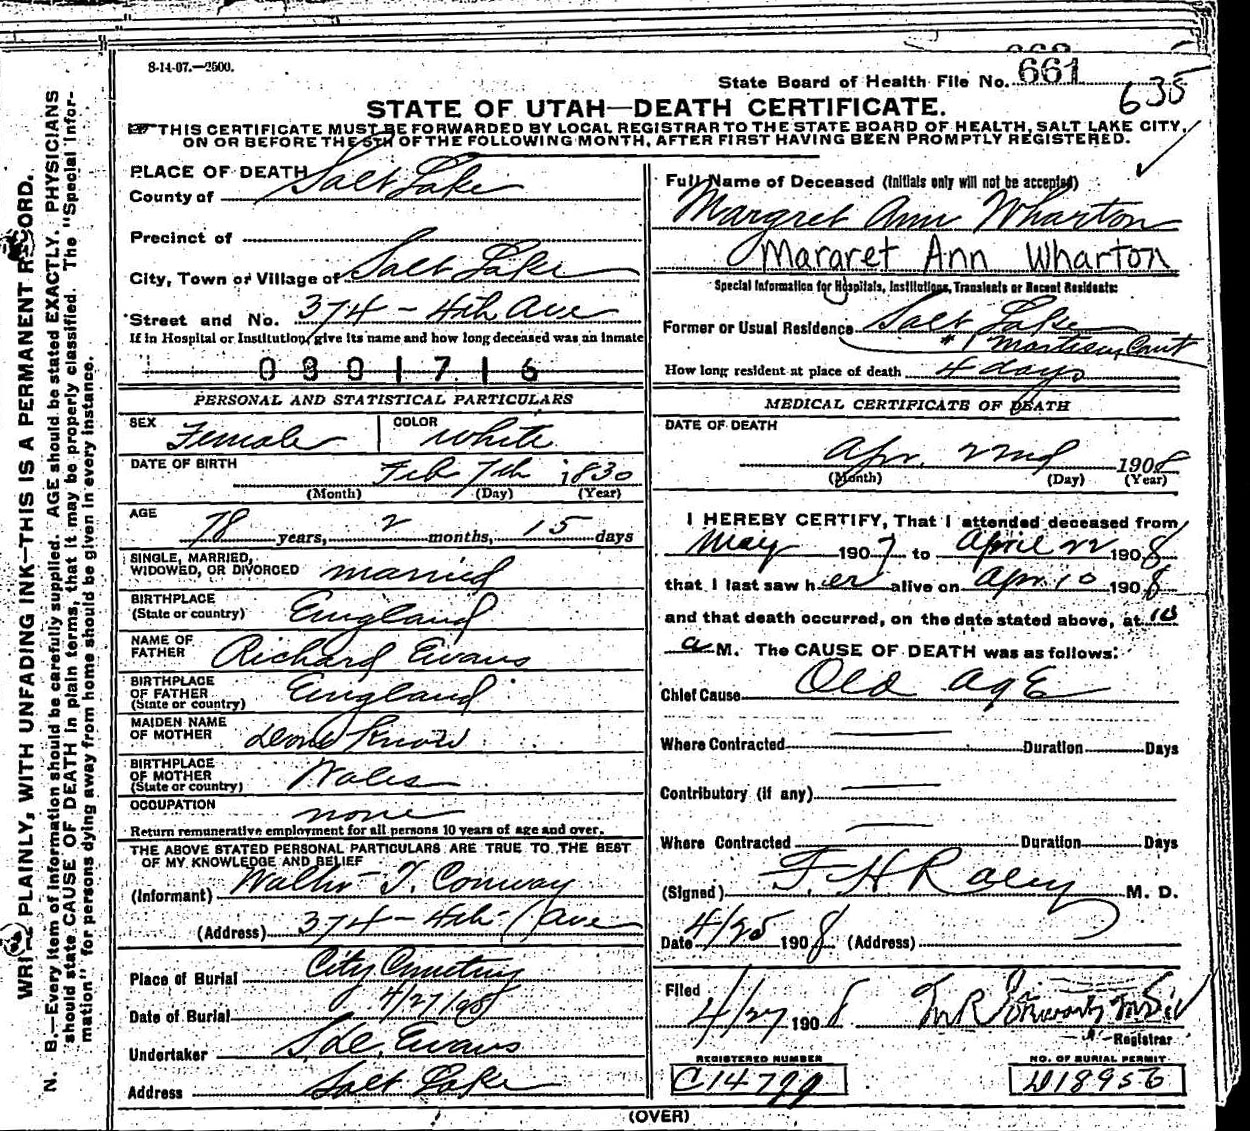 8-14-07.—2500.
State Board of Health File No. 661
635
STATE OF UTAH—DEATH CERTIFICATE.
THIS CERTIFICATE MUST BE FORWARDED BY LOCAL REGISTRAR TO THE STATE BOARD OF HEALTH, SALT LAKE CITY,
ON OR BEFORE THE 5TH OF THE FOLLOWING MONTH, AFTER FIRST HAVING BEEN PROMPTLY REGISTERED.
PLACE OF DEATH
County of Salt Lake
Precinct of
City, Town or Village of Salt Lake
Street and No. 374 - 4th Ave
If in Hospital or Institution, give its name and how long deceased was an inmate
0801716
PERSONAL AND STATISTICAL PARTICULARS
SEX Female COLOR White
DATE OF BIRTH Feb 7th 1830
(Month) (Day) (Year)
AGE 78 years, 2 months, 15 days
SINGLE, MARRIED,
WIDOWED, OR DIVORCED married
BIRTHPLACE
(State or country) England
NAME OF
FATHER Richard Evans
BIRTHPLACE
OF FATHER
(State or country) England
MAIDEN NAME
OF MOTHER dont Know
BIRTHPLACE
OF MOTHER
(State or country) Wales
OCCUPATION none
Return remunerative employment for all persons 10 years of age and over.
THE ABOVE STATED PERSONAL PARTICULARS ARE TRUE TO THE BEST
OF MY KNOWLEDGE AND BELIEF
(Informant) Walter T. Conway
(Address) 374 - 4th Ave
Place of Burial City Cemetery
Date of Burial 4/27/08
Undertaker Evans
Address Salt Lake
Full Name of Deceased (Initials only will not be accepted)
Margret Ann Wharton
Margret Ann Wharton
Special Information for Hospitals, Institutions, Transients or Recent Residents:
Former or Usual Residence Salt Lake
Court
How long resident at place of death 4 days
MEDICAL CERTIFICATE OF DEATH
DATE OF DEATH
Apr. 22nd 1908
(Month) (Day) (Year)
I HEREBY CERTIFY, That I attended deceased from
May 1907 to April 22 1908
that I last saw her alive on Apr. 10 1908
and that death occurred, on the date stated above, at 10
a M. The CAUSE OF DEATH was as follows:
Chief Cause Old age
Where Contracted Duration Days
Contributory (if any)
Where Contracted Duration Days
(Signed) F. H. Raley M. D.
Date 4/25 1908 (Address)
Filed 4/27 1908
Registrar
REGISTERED NUMBER
C14799
NO. OF BURIAL PERMIT
D18956
(OVER)
WRITE PLAINLY, WITH UNFADING INK—THIS IS A PERMANENT RECORD.
N. B.—Every item of information should be carefully supplied. AGE should be stated EXACTLY. PHYSICIANS
should state CAUSE OF DEATH in plain terms, that it may be properly classified. The "Special Infor-
mation" for persons dying away from home should be given in every instance.